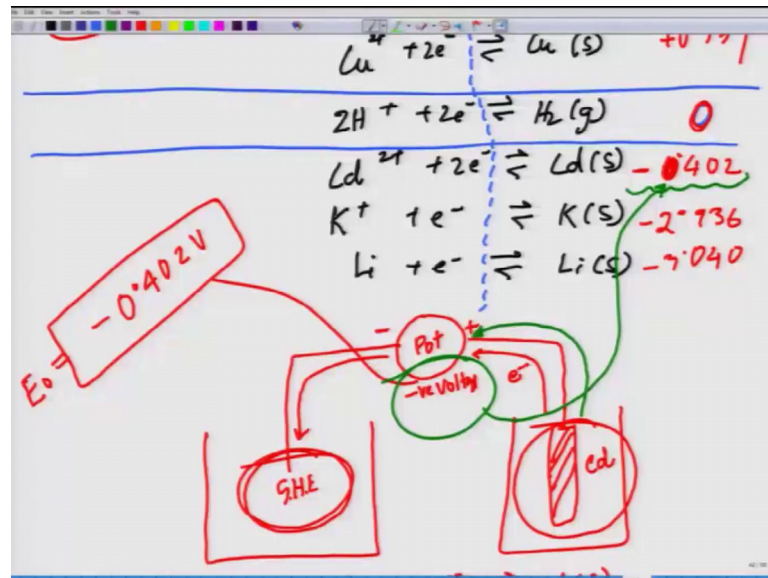 Cu²⁺ +2e⁻ ⇌ Cu(s)
2H⁺ +2e⁻ ⇌ H₂(g) 0
Cd²⁺ +2e⁻ ⇌ Cd(s) -0.402
K⁺ +e⁻ ⇌ K(s) -2.936
Li +e⁻ ⇌ Li(s) -3.040
E₀ = -0.402V
- Pot +
-ve voltage
e⁻
S.H.E
Cd